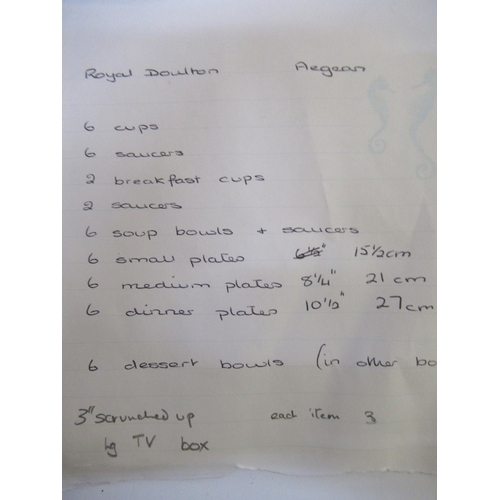 Royal Doulton Aegean
6 cups
6 saucers
2 breakfast cups
2 saucers
6 soup bowls + saucers
6 small plates 15½cm
6 medium plates 8¼" 21 cm
6 dinner plates 10½" 27cm
6 dessert bowls (in other bo
3" scrunched up each item 3
lg TV box